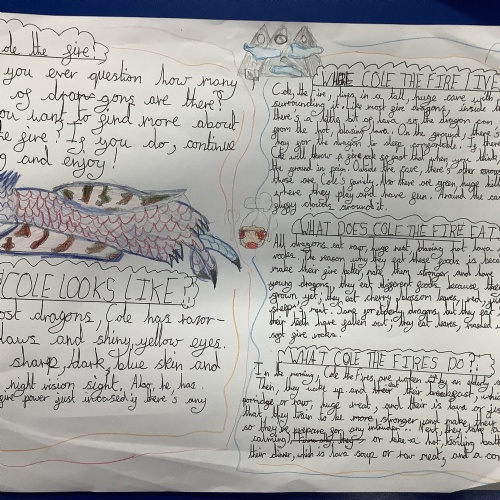 Cole the fire!
you ever question how many
of dragons are there?
you want to find more about
the fire? If you do, continue
and enjoy!
COLE LOOKS LIKE?
most dragons, Cole has razor-
claws and shiny, yellow eyes.
sharp, dark, blue skin and
night vision sight. Also, he has
fire power just incase if there's any
WHERE COLE THE FIRE LIVES
Cole, the Fire, lives in a tall, huge cave with
surrounding it. Like most fire dragons, inside
there is a little bit of lava, so the dragon can
from the hot, blazing lava. On the ground, there is
hay for the dragon to sleep comfortable. If there
he will throw a so fast that when you
the ground in pain. Outside the cave, there's other
those are Cole's family. Also there are green, huge hills
where they play and have fun. Around the
fluffy clouds around it.
WHAT DOES COLE THE FIRE EAT?
All dragons eat raw, huge meat, blazing hot lava
rocks. The reason why they eat these foods is because
make their fire better, make them stronger, and
young dragons, they eat different foods, because their
grown yet, they eat cherry blossom leaves, red
sheep's meat. Same for elderly dragons, but they eat
their teeth have fallen out, they eat leaves, mashed
soft fire rocks.
WHAT COLE THE FIRES DO?
In the morning, Cole the Fires, are woken up by an elderly
Then, they wake up and their breakfast, which
porridge or raw, huge meat, and their is lava or
that, they train to be more stronger and make their
so they're prepare for any intruder. Next, they take
calming, or take a hot, boiling bath
their dinner, which is lava soup or raw meat, and a